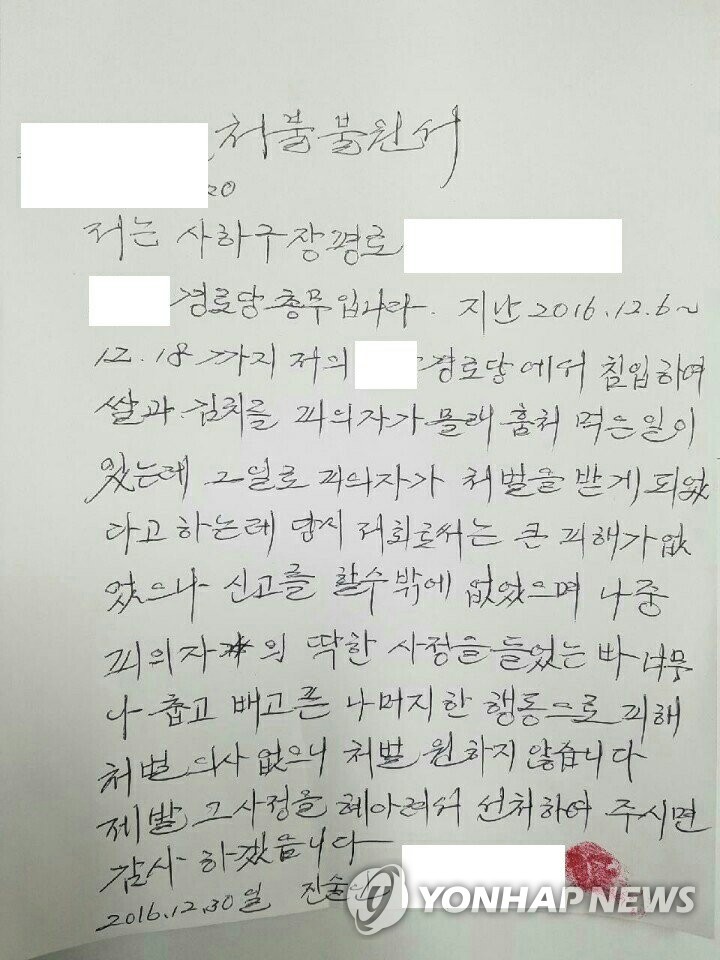 처불불원서
20
저는 사하구장평로
경로당 총무입니다. 지난 2016.12.6~
12.18까지 저의 경로당에서 침입하여
쌀과 김치를 피의자가 몰래 훔쳐 먹은일이
있는데 그일로 피의자가 처벌을 받게 되었
다고 하는데 당시 저희로써는 큰 피해가 없
었으나 신고를 할수 밖에 없었으며 나중
피의자의 딱한 사정을 들었는 바 너무
나 춥고 배고픈 나머지한 행동으로 피해
처벌 의사 없으니 처벌 원하지 않습니다
제발 그사정을 헤아려서 선처하여 주시면
감사 하겠습니다
2016.12.30일 진술인
YONHAP NEWS